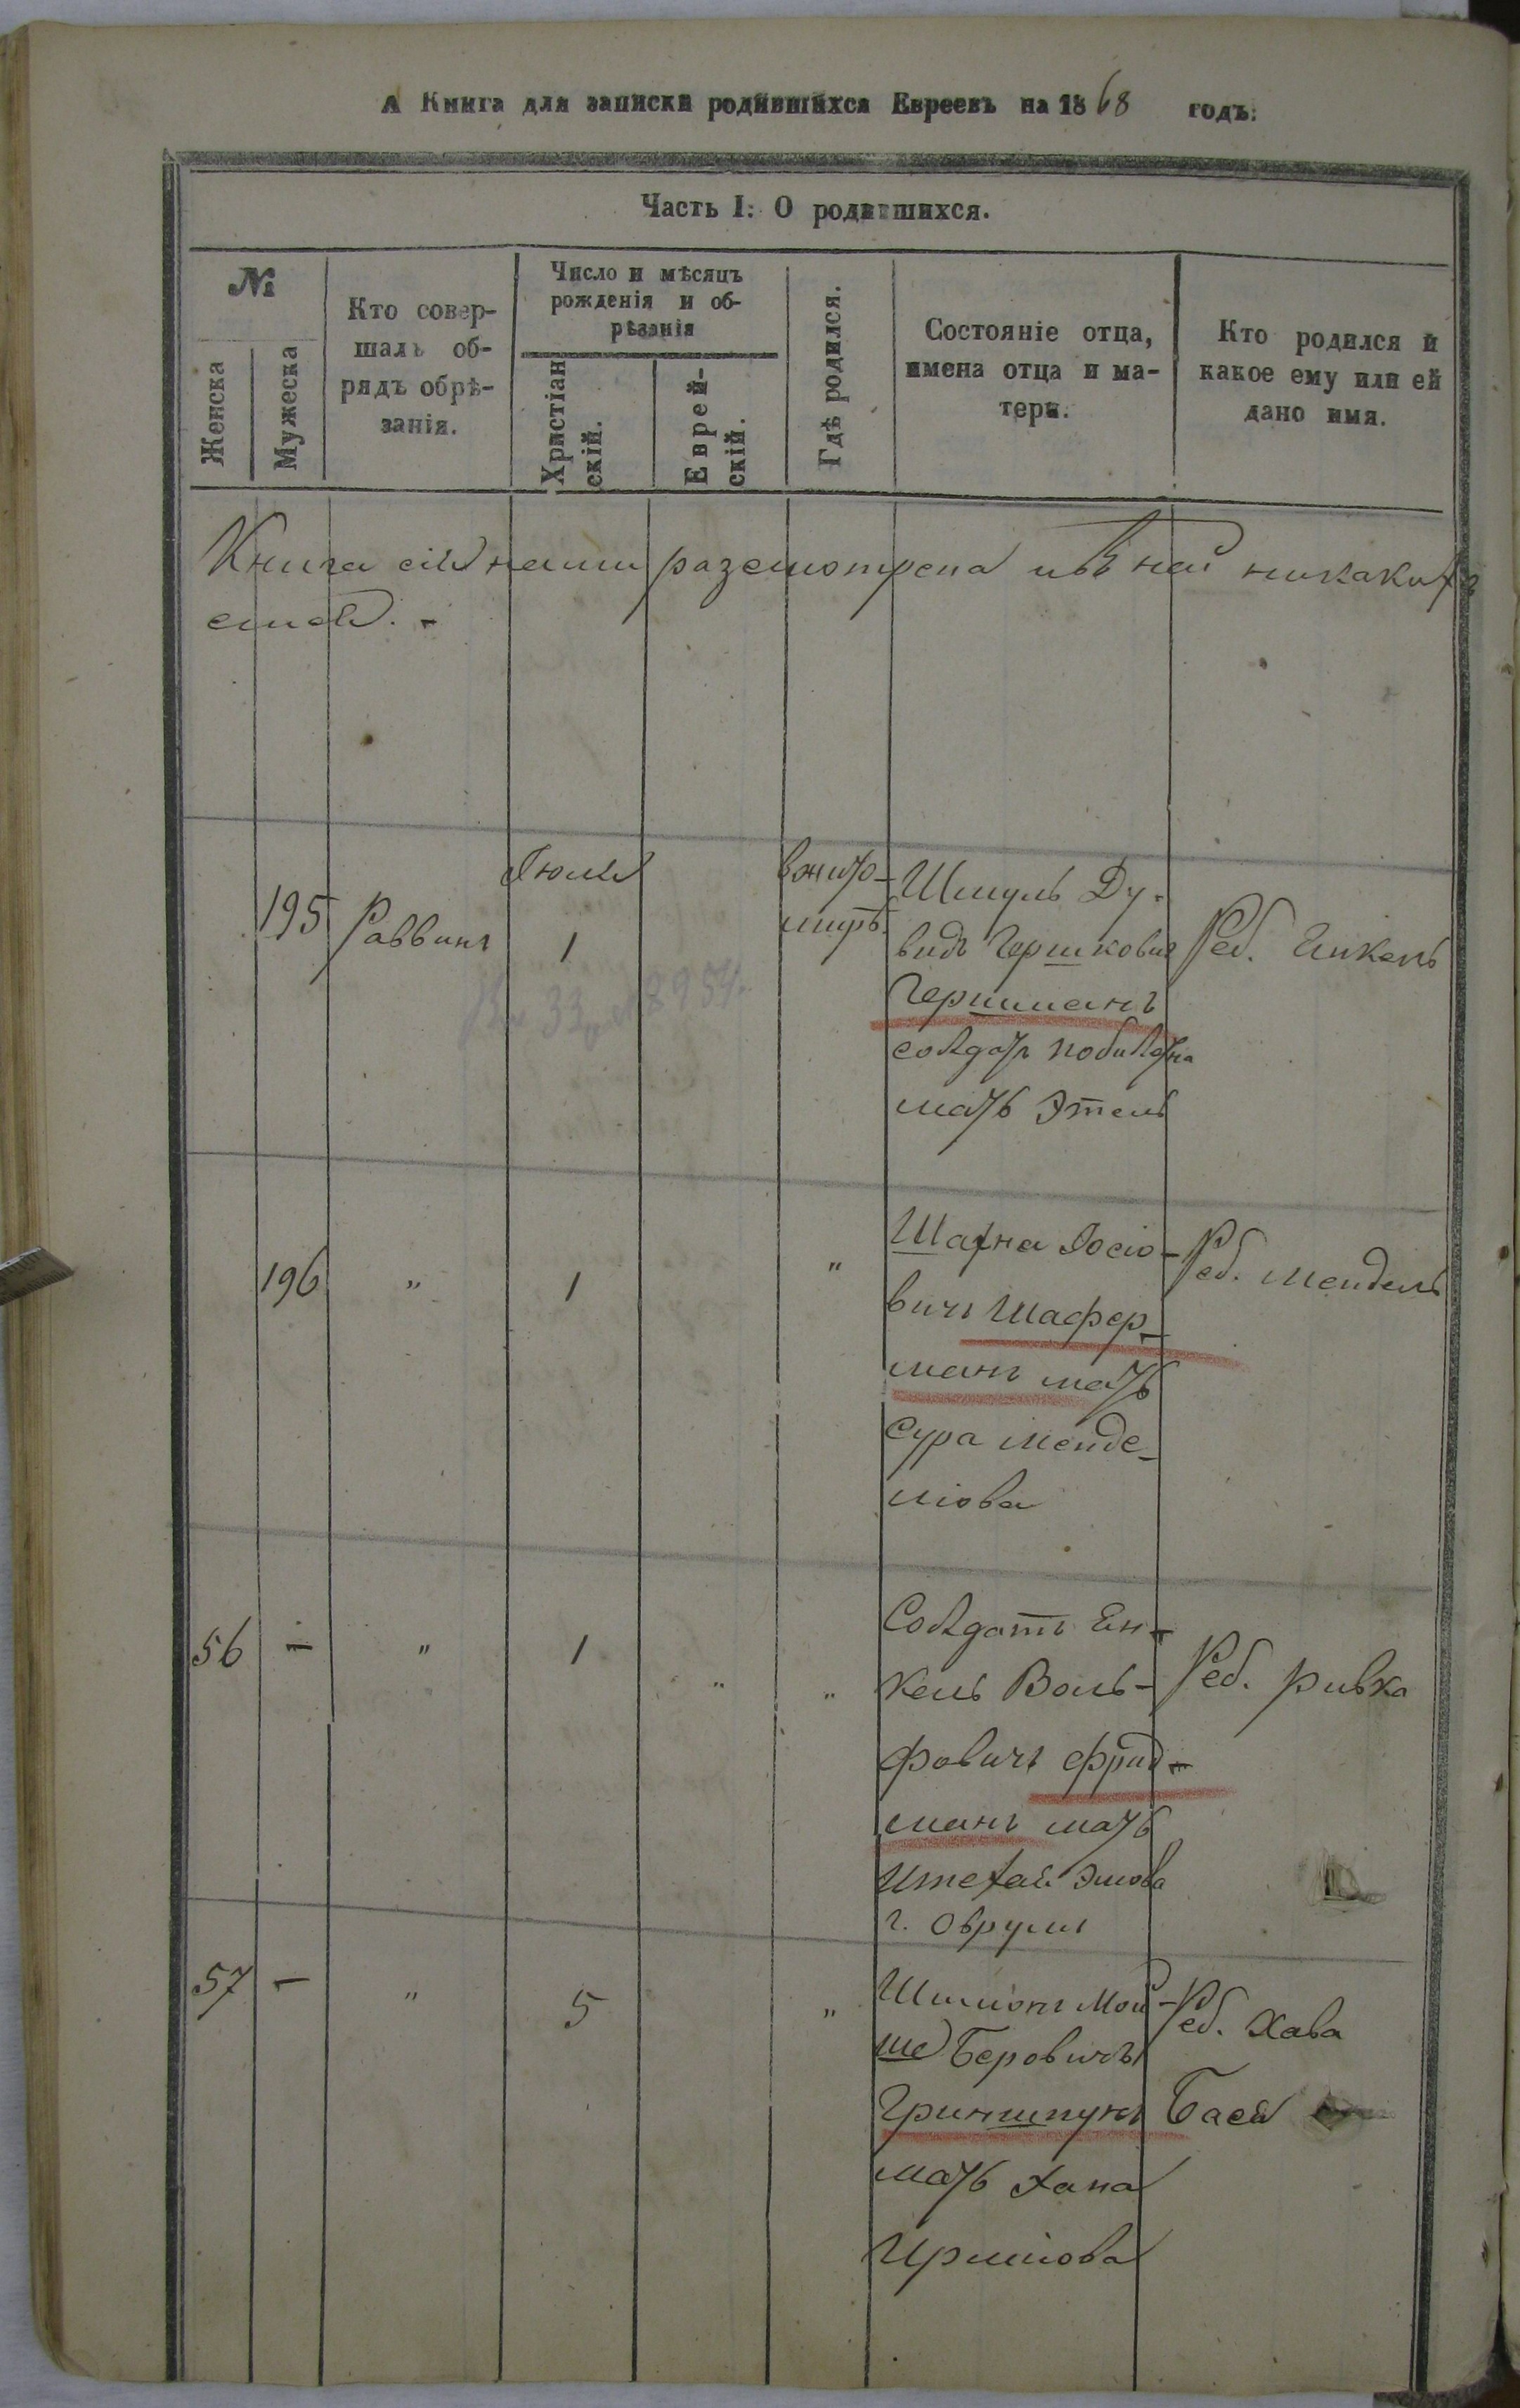 А Книга для записки родившихся Евреевъ на 1868 годъ.
Часть I: О родившихся.
№
Женска
Мужеска
Кто совер-
шалъ об-
рядъ обрѣ-
занія.
Число и мѣсяцъ
рожденія и об-
рѣзанія
Христіан
скій.
Еврей-
скій.
Гдѣ родился.
Состояніе отца,
имена отца и ма-
тери.
Кто родился и
какое ему или ей
дано имя.
Книга сія нами разсмотрена и въ ней никакихъ
195
Раввинъ
Іюля
1
33 8954.
в жито-
мирѣ
Шмуль Ду-
видъ Гершкович
Гершманъ
солдат
мать Этель
Реб. Инкель
196
"
1
"
Шахна Іосіо-
вичъ Шафер-
манъ мать
Сура Менде-
ліова
Реб. Мендель
56
-
"
1
"
"
Солдатъ Ен-
кель Воль-
фовичъ Фрид-
манъ мать
г. Овручъ
Реб. Ривка
57
-
"
5
"
Шиміонъ Мой-
ше Беровичъ
Гриншпунъ
мать Хана
Иршіова
Реб. Хава
Бася